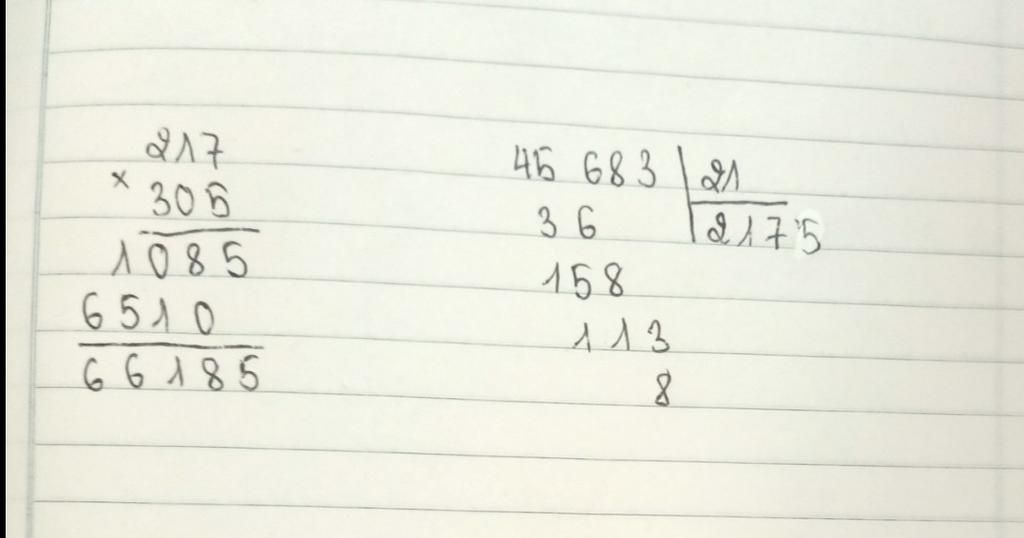 217
× 305
1085
6510
66185
45 683 | 21
36 | 2175
158
113
8